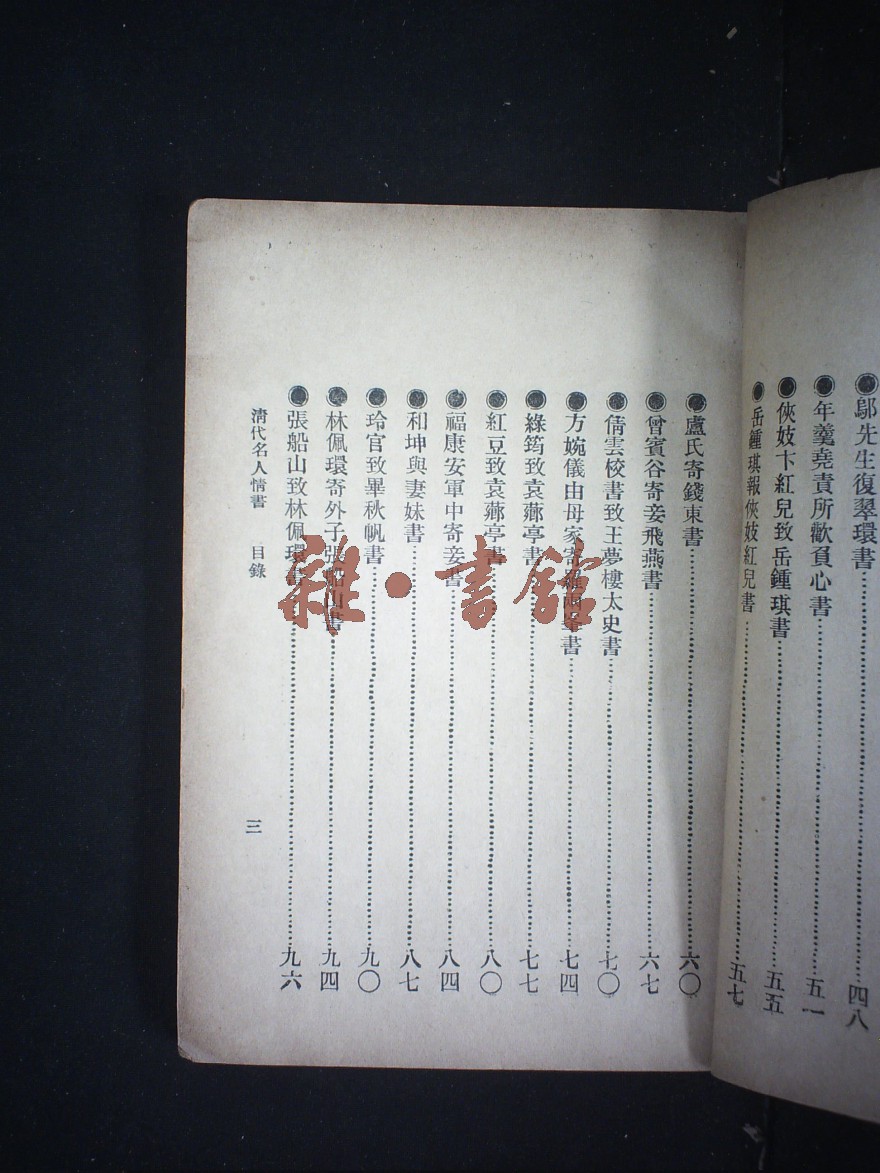 鄔先生復翠環書⋯⋯四八
年羹堯責所歡負心書⋯⋯五一
俠妓卞紅兒致岳鍾琪書⋯⋯五五
岳鍾琪報俠妓紅兒書⋯⋯五七
盧氏寄錢東書⋯⋯六〇
曾賓谷寄妾飛燕書⋯⋯六七
倩雲校書致王夢樓太史書⋯⋯七〇
方婉儀由母家寄羅兩峯書⋯⋯七四
綠筠致袁蘀亭書⋯⋯七七
紅豆致袁蘀亭書⋯⋯八〇
福康安軍中寄妾書⋯⋯八四
和坤與妻妹書⋯⋯八七
玲官致畢秋帆書⋯⋯九〇
林佩環寄外子張船山書⋯⋯九四
張船山致林佩環書⋯⋯九六
清代名人情書 目錄 三
雜·書館